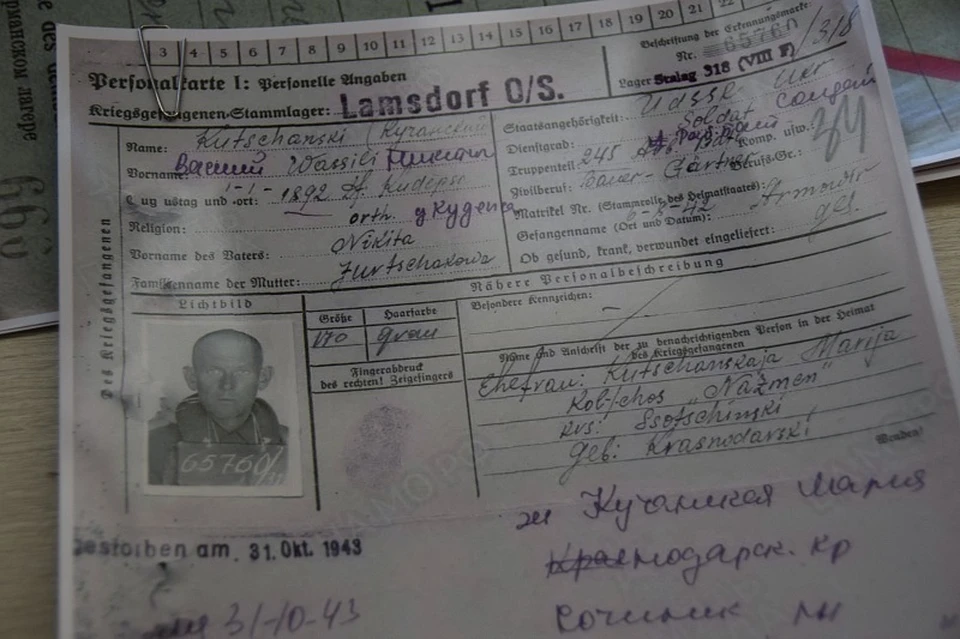 3 4 5 6 7 8 9 10 11 12 13 14 15 16 17 18 19 20 21 22
Personalkarte I: Personelle Angaben
Kriegsgefangenen-Stammlager: Lamsdorf O/S.
Beschriftung der Erkennungsmarke:
Nr. 65760/318
Lager: Stalag 318 (VIII F)
Des Kriegsgefangenen
Name: Kutschanski (Кучанский
Vorname: Василий Wassili
1-1-1892 Kudepso
Religion: orth. Кудепса
Vorname des Vaters: Nikita
Familienname der Mutter: Jurtschakowa
Staatsangehörigkeit: UdSSR Ukr
Dienstgrad: Soldat Солдат
Truppenteil: 245 Komp. usw.:
Zivilberuf: Bauer-Gärtner Berufs-Gr.:
Matrikel Nr. (Stammrolle des Heimatstaates):
Gefangennahme (Ort und Datum): 6-8-42 Armawir
Ob gesund, krank, verwundet eingeliefert: ges.
Nähere Personalbeschreibung
Lichtbild
Größe Haarfarbe
170 grau
Fingerabdruck
des rechten! Zeigefingers
Besondere Kennzeichen: —
Name und Anschrift der zu benachrichtigenden Person in der Heimat
des Kriegsgefangenen
Ehefrau: Kutschanskaja Marija
Kolchos „Nazmen"
Krs: Ssotschinski
Geb: Krasnodarski
Wenden!
65760/
Gestorben am 31. Okt. 1943
31-10-43
ж Кучанская Мария
Краснодарск. кр
Сочинск